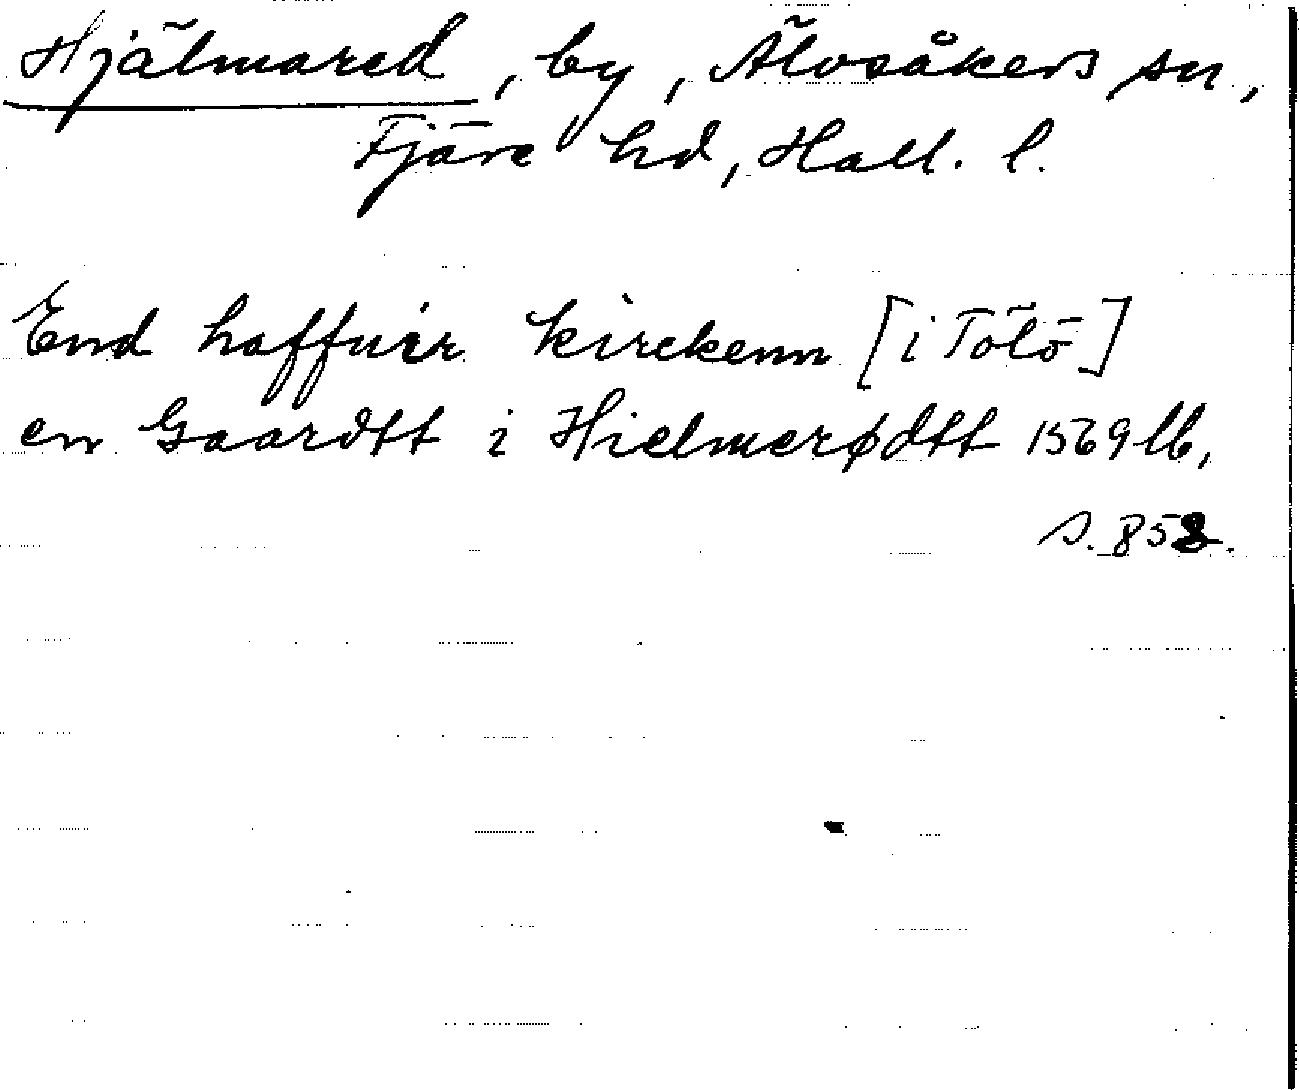 Hjälmared, by, Älvsåkers sn,
Fjäre hd, Hall. l.
End haffuer kirckenn [i Tölö]
en Gaardtt i Hielmerødtt 1569 lb,
s. 858.